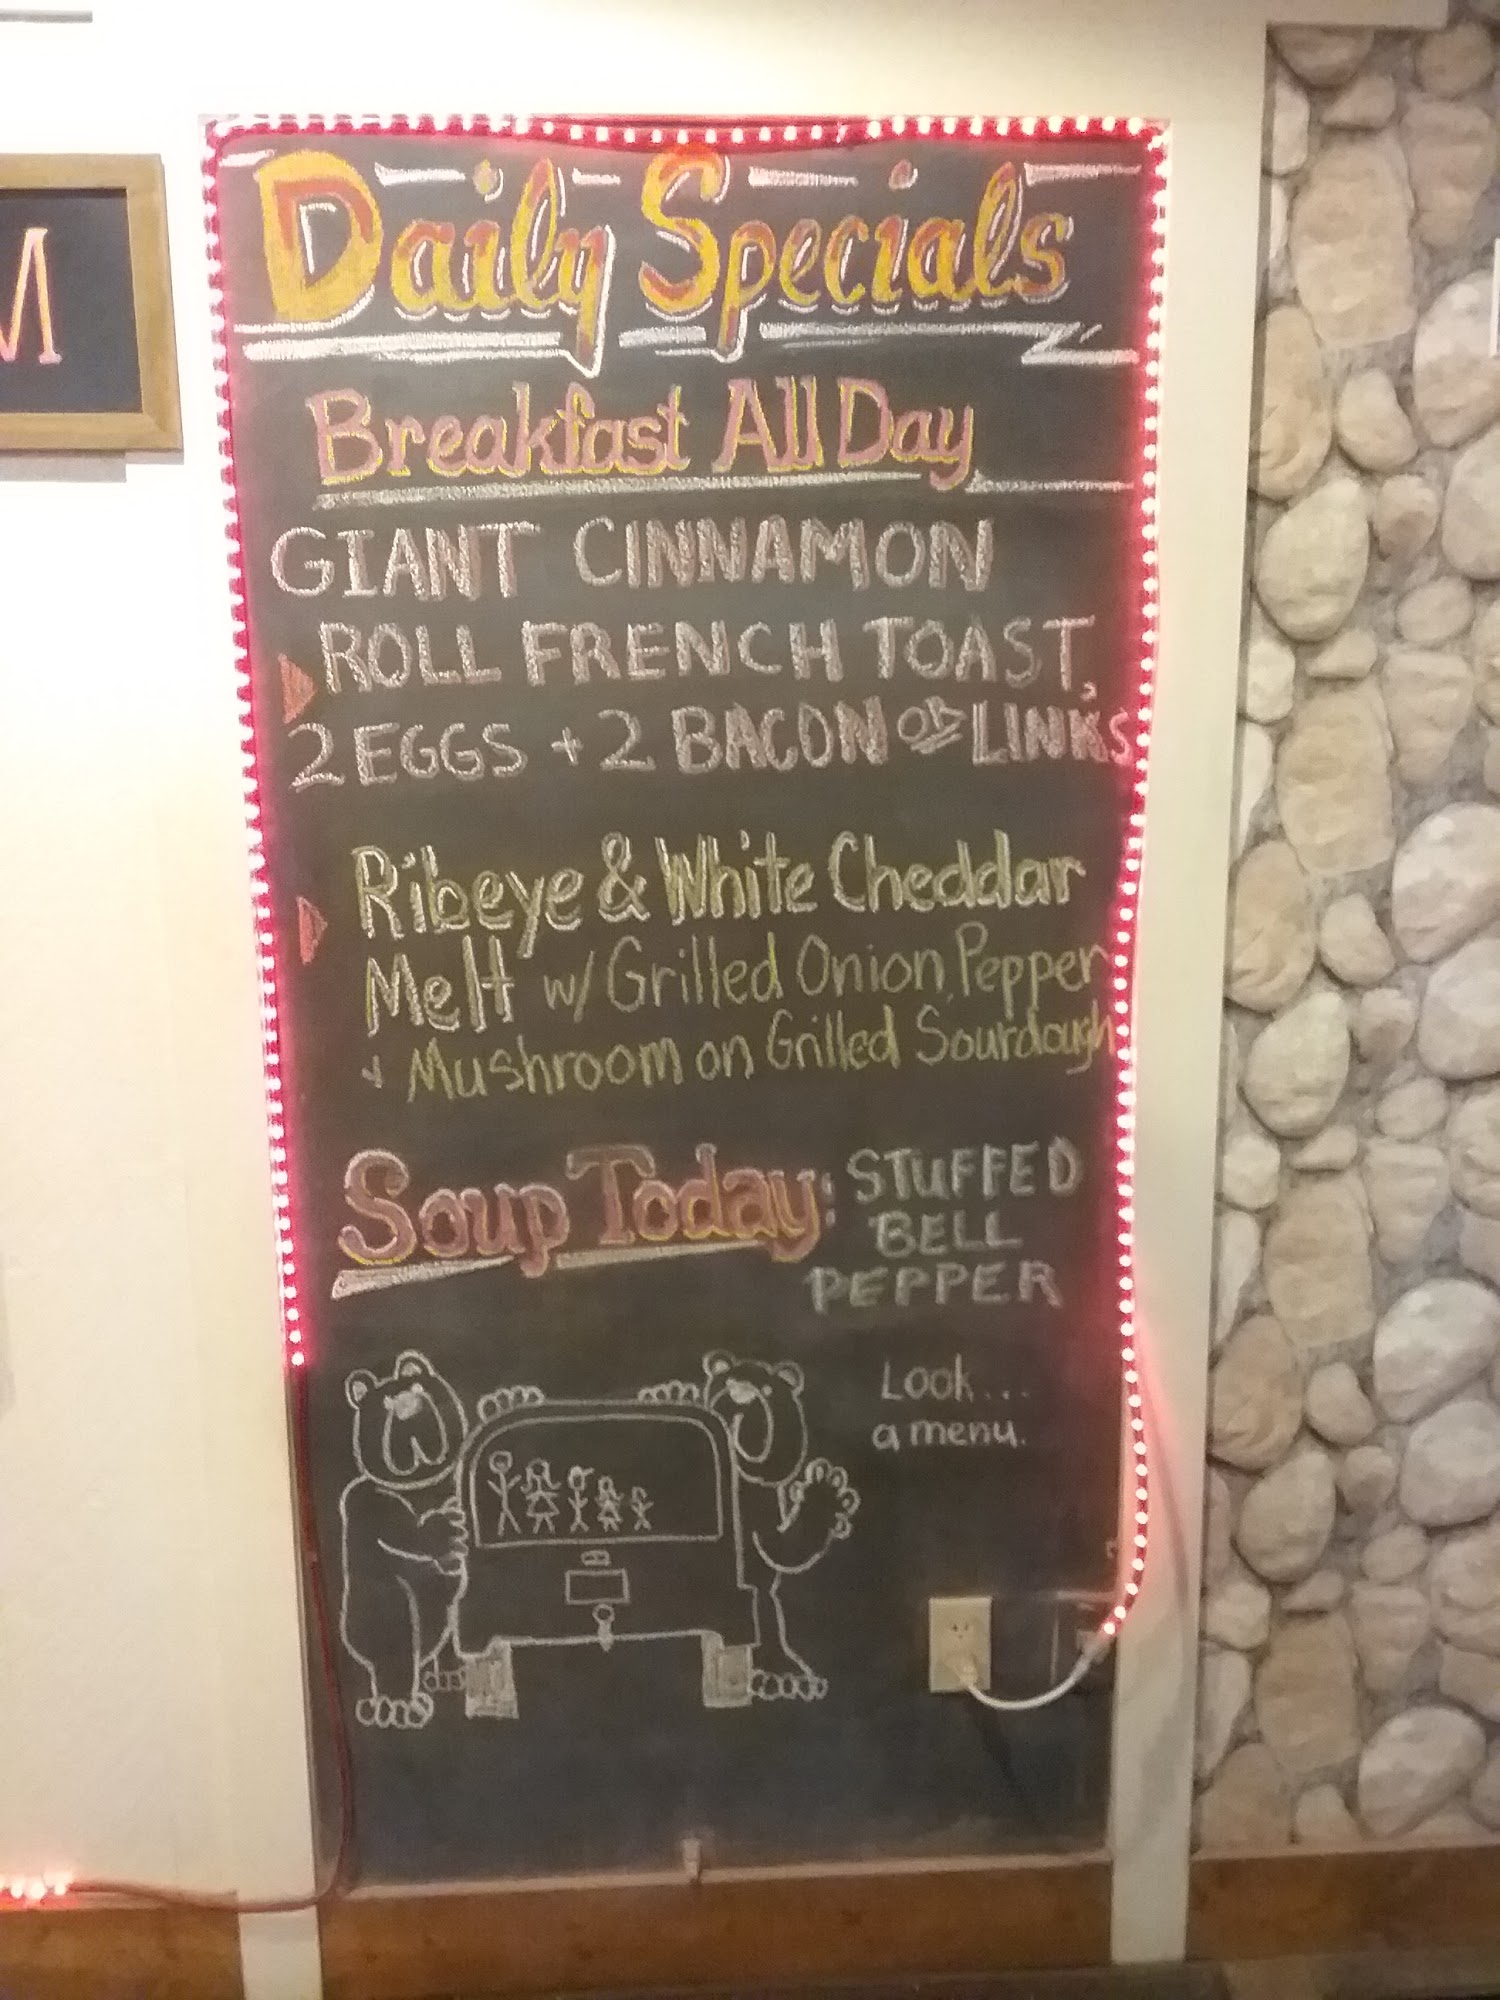 M
Daily Specials
Breakfast All Day
GIANT CINNAMON
ROLL FRENCH TOAST,
2 EGGS + 2 BACON OR LINKS
Ribeye & White Cheddar
Melt w/ Grilled Onion, Pepper
+ Mushroom on Grilled Sourdough
Soup Today: STUFFED
BELL
PEPPER
Look...
a menu.